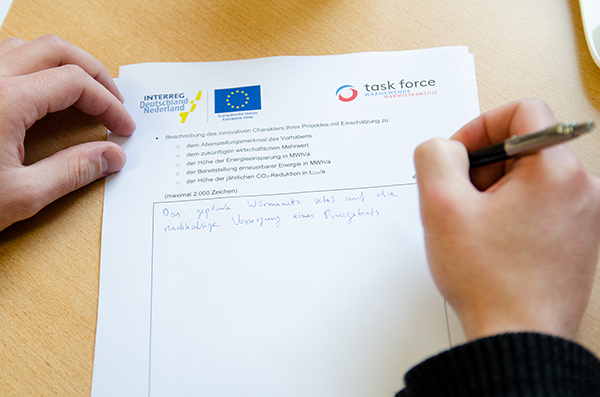 INTERREG
Deutschland
Nederland
Europäische Union
Europese Unie
task force
WÄRMEWENDE
WARMTETRANSITIE
Beschreibung des innovativen Charakters Ihres Projektes mit Einschätzung zu:
dem Alleinstellungsmerkmal des Vorhabens
dem zukünftigen wirtschaftlichen Mehrwert
der Höhe der Energieeinsparung in MWh/a
der Bereitstellung erneuerbarer Energie in MWh/a
der Höhe der jährlichen CO₂-Reduktion in tCO2/a
(maximal 2.000 Zeichen)
Das geplante Wärmenetz setzt auf die
nachhaltige Versorgung eines Baugebiets